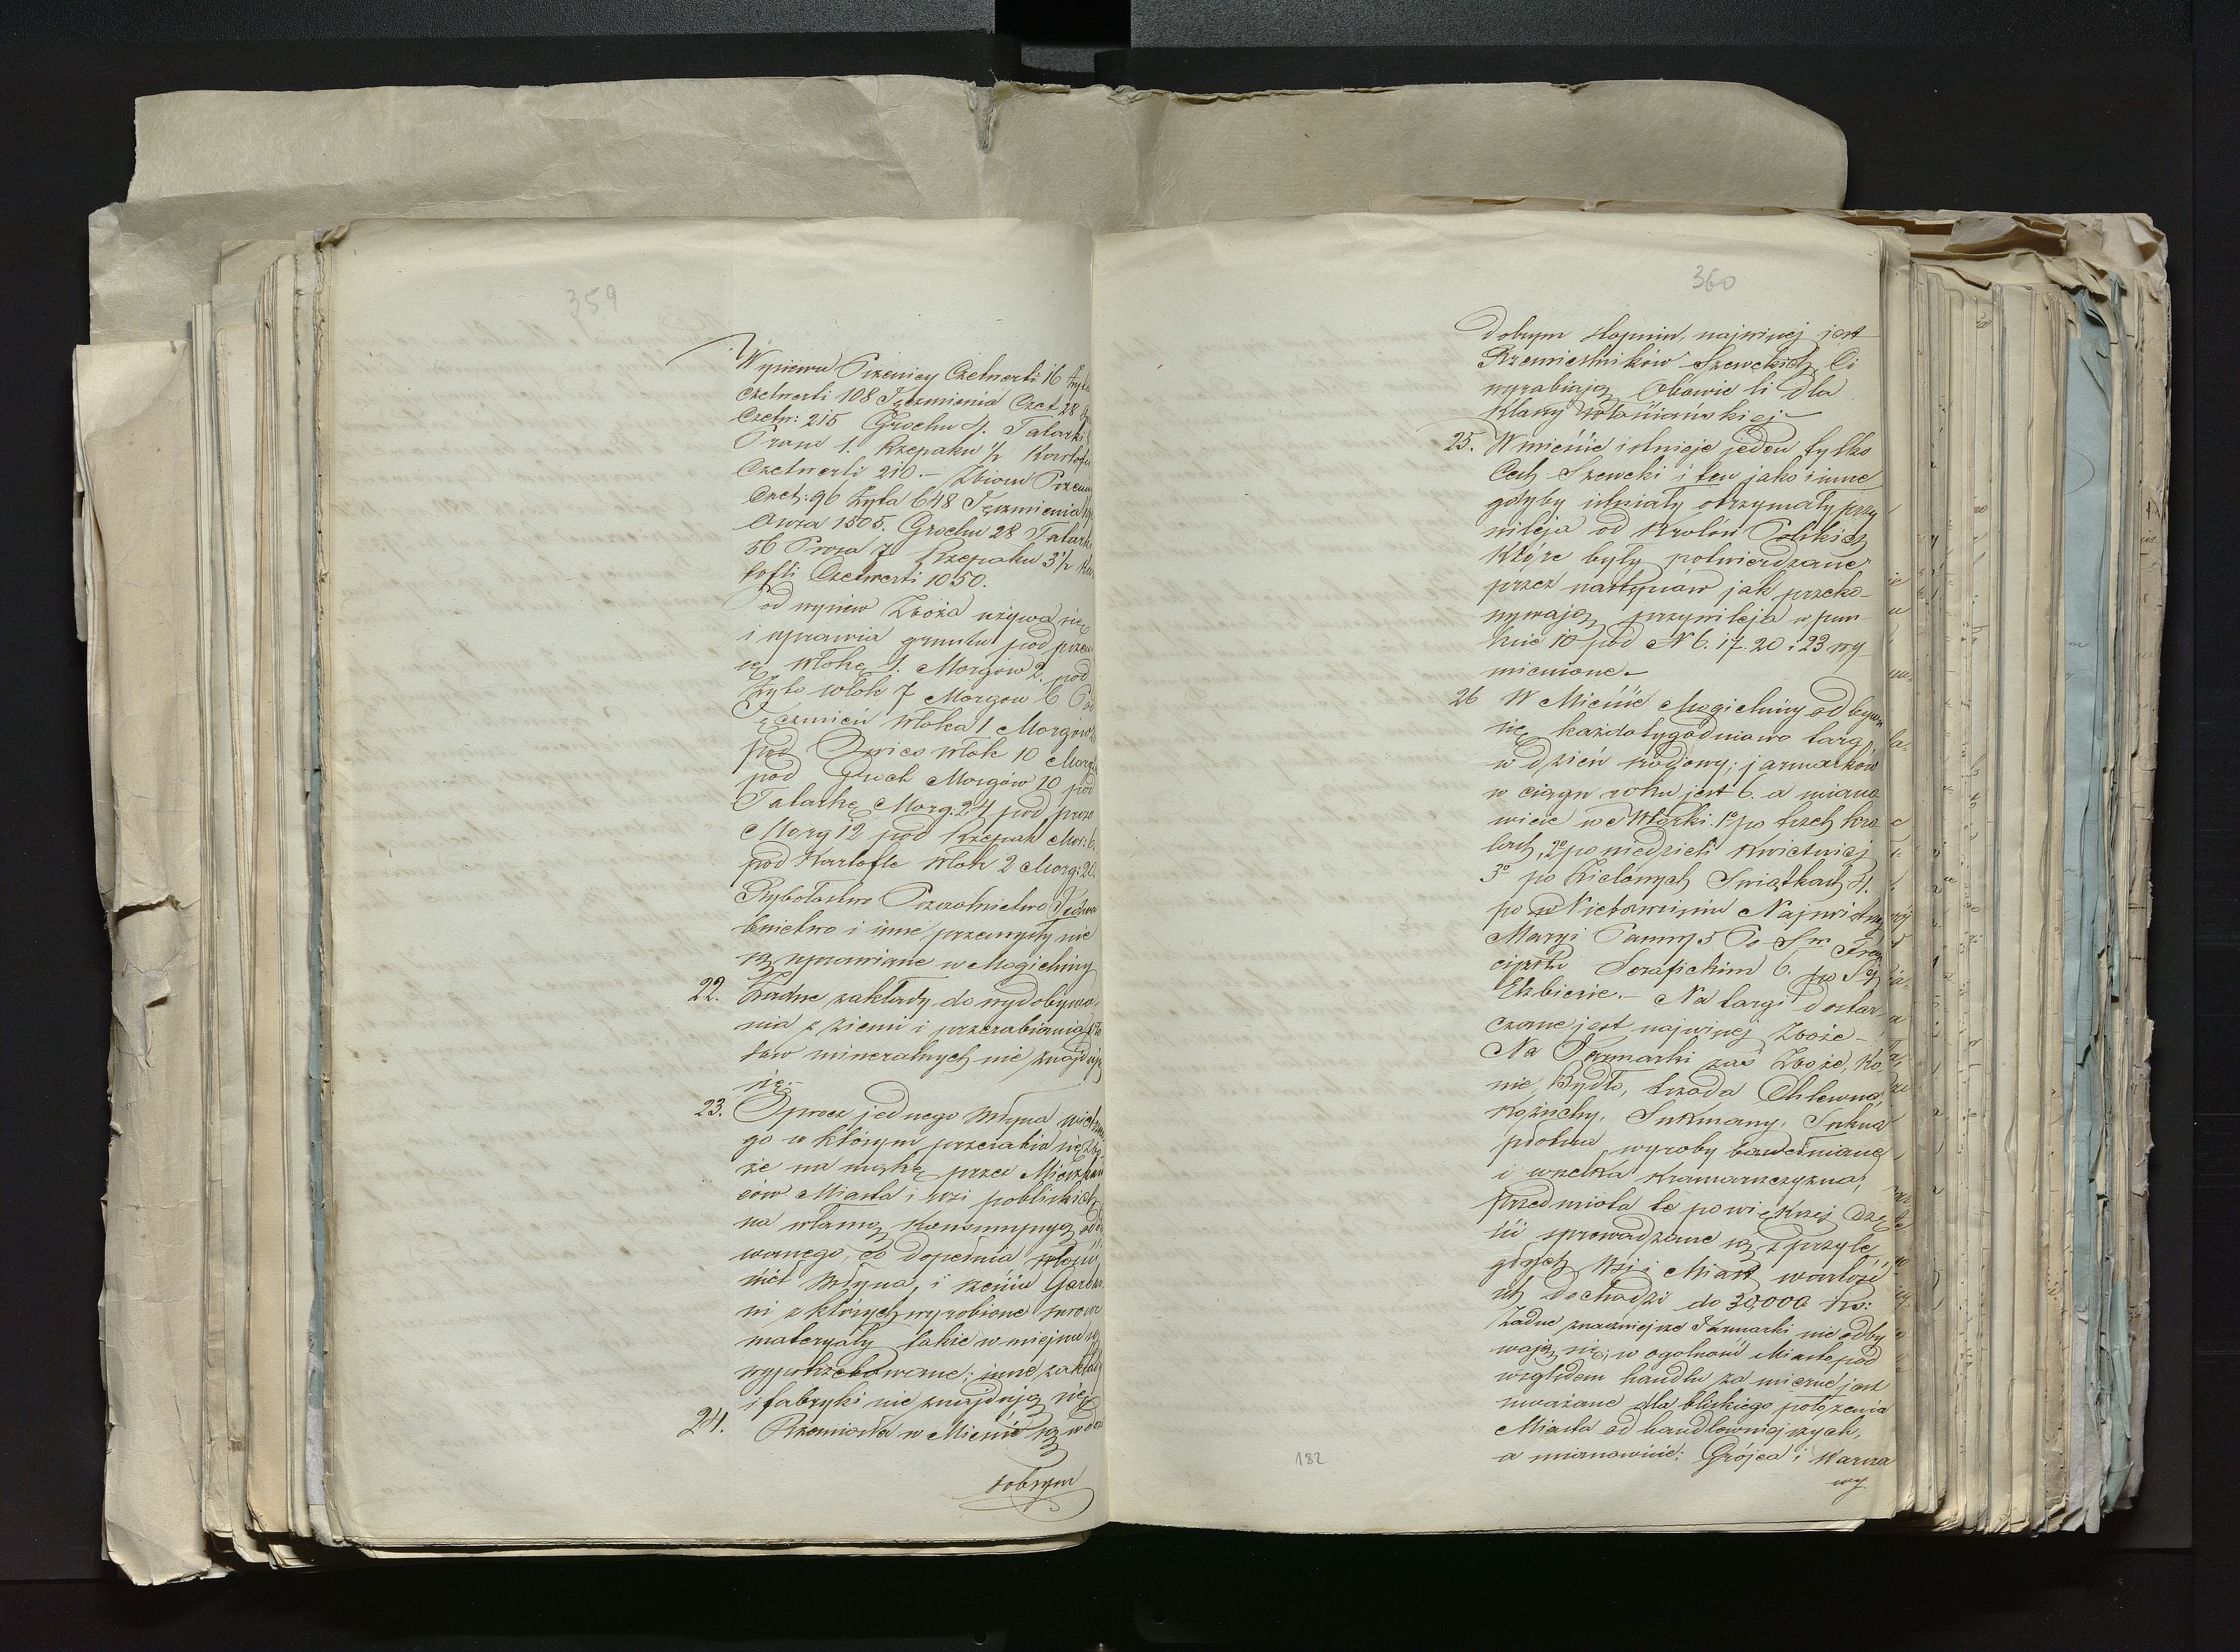 359
Wysiewu Pszenicy Czetwerti 16 Żyta
Czetwerti 108 Jęczmienia Czet 28
Czetw: 215 Grochu 4. Tatarki
Prosa 1. Rzepaku ½ Kartofli
Czetwerti 210.- Zbioru Pszeni
Czet: 96 Żyta 648 Jęczmienia
Owsa 1505. Grochu 28 Tatark
56 Prosa 7 Rzepaku 3½ Kar
tofli Czetwerti 1050.
Pod wysiew Zboża używa się
i uprawia gruntu pod pszen
cę Włókę 1. Morgów 2. pod
Żyto Włók 7 Morgow 6 Pod
Jęczmień Włoka 1 Morgów
pod Owies Włok 10 Morg
pod Groch Morgów 10 pod
Tatarkę Morg: 24 pod proso
Morg 12 pod Rzepak Mor: 6.
pod Kartofle Włok 2 Morg: 20.
Rybołostwo Pszczolnictwo Jedwa
bnictwo i inne przemysły nie
są uprawiane w Mogielnicy
22. Żadne zakłady do wydobywa-
nia z ziemi i przerabiania
tow mineralnych nie znajdują
się.-
23. Oprocz jednego Młyna
go w którym przerabia się Zbo-
że na mąkę przez Mieszkań
ców Miasta i wsi pobliskich
na własną Konsumpcyą
wanego, co dopełnia
ciel Młyna, i sześciu Garbar
ni z których wyrobione surowe
materyały także w miejscu są
wypotrzebowane; inne zakłady
i fabryki nie znajdują się
24. Rzemiosła w Mieście są w dość
dobrym
360
dobrym stopniu, najwięcej jest
Rzemieslników Szewckich, Ci
wyrabiają Obowie li dla
Klassy włościańskiej.-
25. W mieście istnieje jeden tylko
Cech Szewcki i ten jako i inne
gdyby istniały otrzymały przy
wileja od Krolów Polskich
Które były potwierdzane
przez następców jak przeko-
nywają przywileja w pun-
kcie 10 pod N 6. 17. 20 i 23 wy
mienione.-
26 W Mieście Mogielnicy odbywa
się każdotygodniowo targ,
w dzień środowy; jarmarków
w ciągu roku jest 6. a miano
wicie we Wtorki. 1º po trzech Kro-
lach, 2º po niedzieli Kwietniej
3º po Zielonych Swiątkach 4.
po Wniebowzięciu Najświętszej
Maryi Panny 5 Po Sm Fran
ciszku Serafickim 6. po Sej
Elzbiecie.- Na targi dostar-
czane jest najwięcej Zboże-
Na Jarmarki zaś Zboże, Ko-
nie, Bydło, trzoda Chlewna,
Kożuchy, Sukmany, Sukna
płótna wyroby bawełniane
i wszelka Kramarszczyzna,
przedmiota te powiększej czę
ści sprowadzane są z przyle-
głych Wsi i Miast wartość
ich dochodzi do 30,000 Rs:
Żadne znaczniejsze Jarmarki nie odby
wają się; w ogolności Miasto pod
względem handlu za mierne jest
uważane dla bliskiego położenia
Miasta od handlowniejszych,
a mianowicie: Grójca i Warsza
wy
182